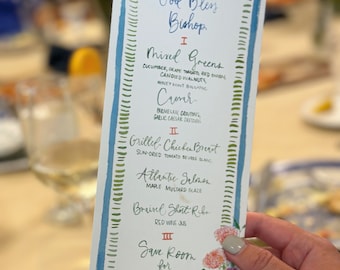 God Bless
Bishop
I
Mixed Greens
CUCUMBER, GRAPE TOMATO, RED ONION,
CANDIED WALNUTS,
HONEY WHITE BALSAMIC
Caesar
PARMESAN, CROUTONS,
GARLIC CAESAR DRESSING
II
Grilled Chicken Breast
SUN-DRIED TOMATO BEURRE BLANC
Atlantic Salmon
MAPLE MUSTARD GLAZE
Braised Short Ribs
RED WINE JUS
III
Save Room
for